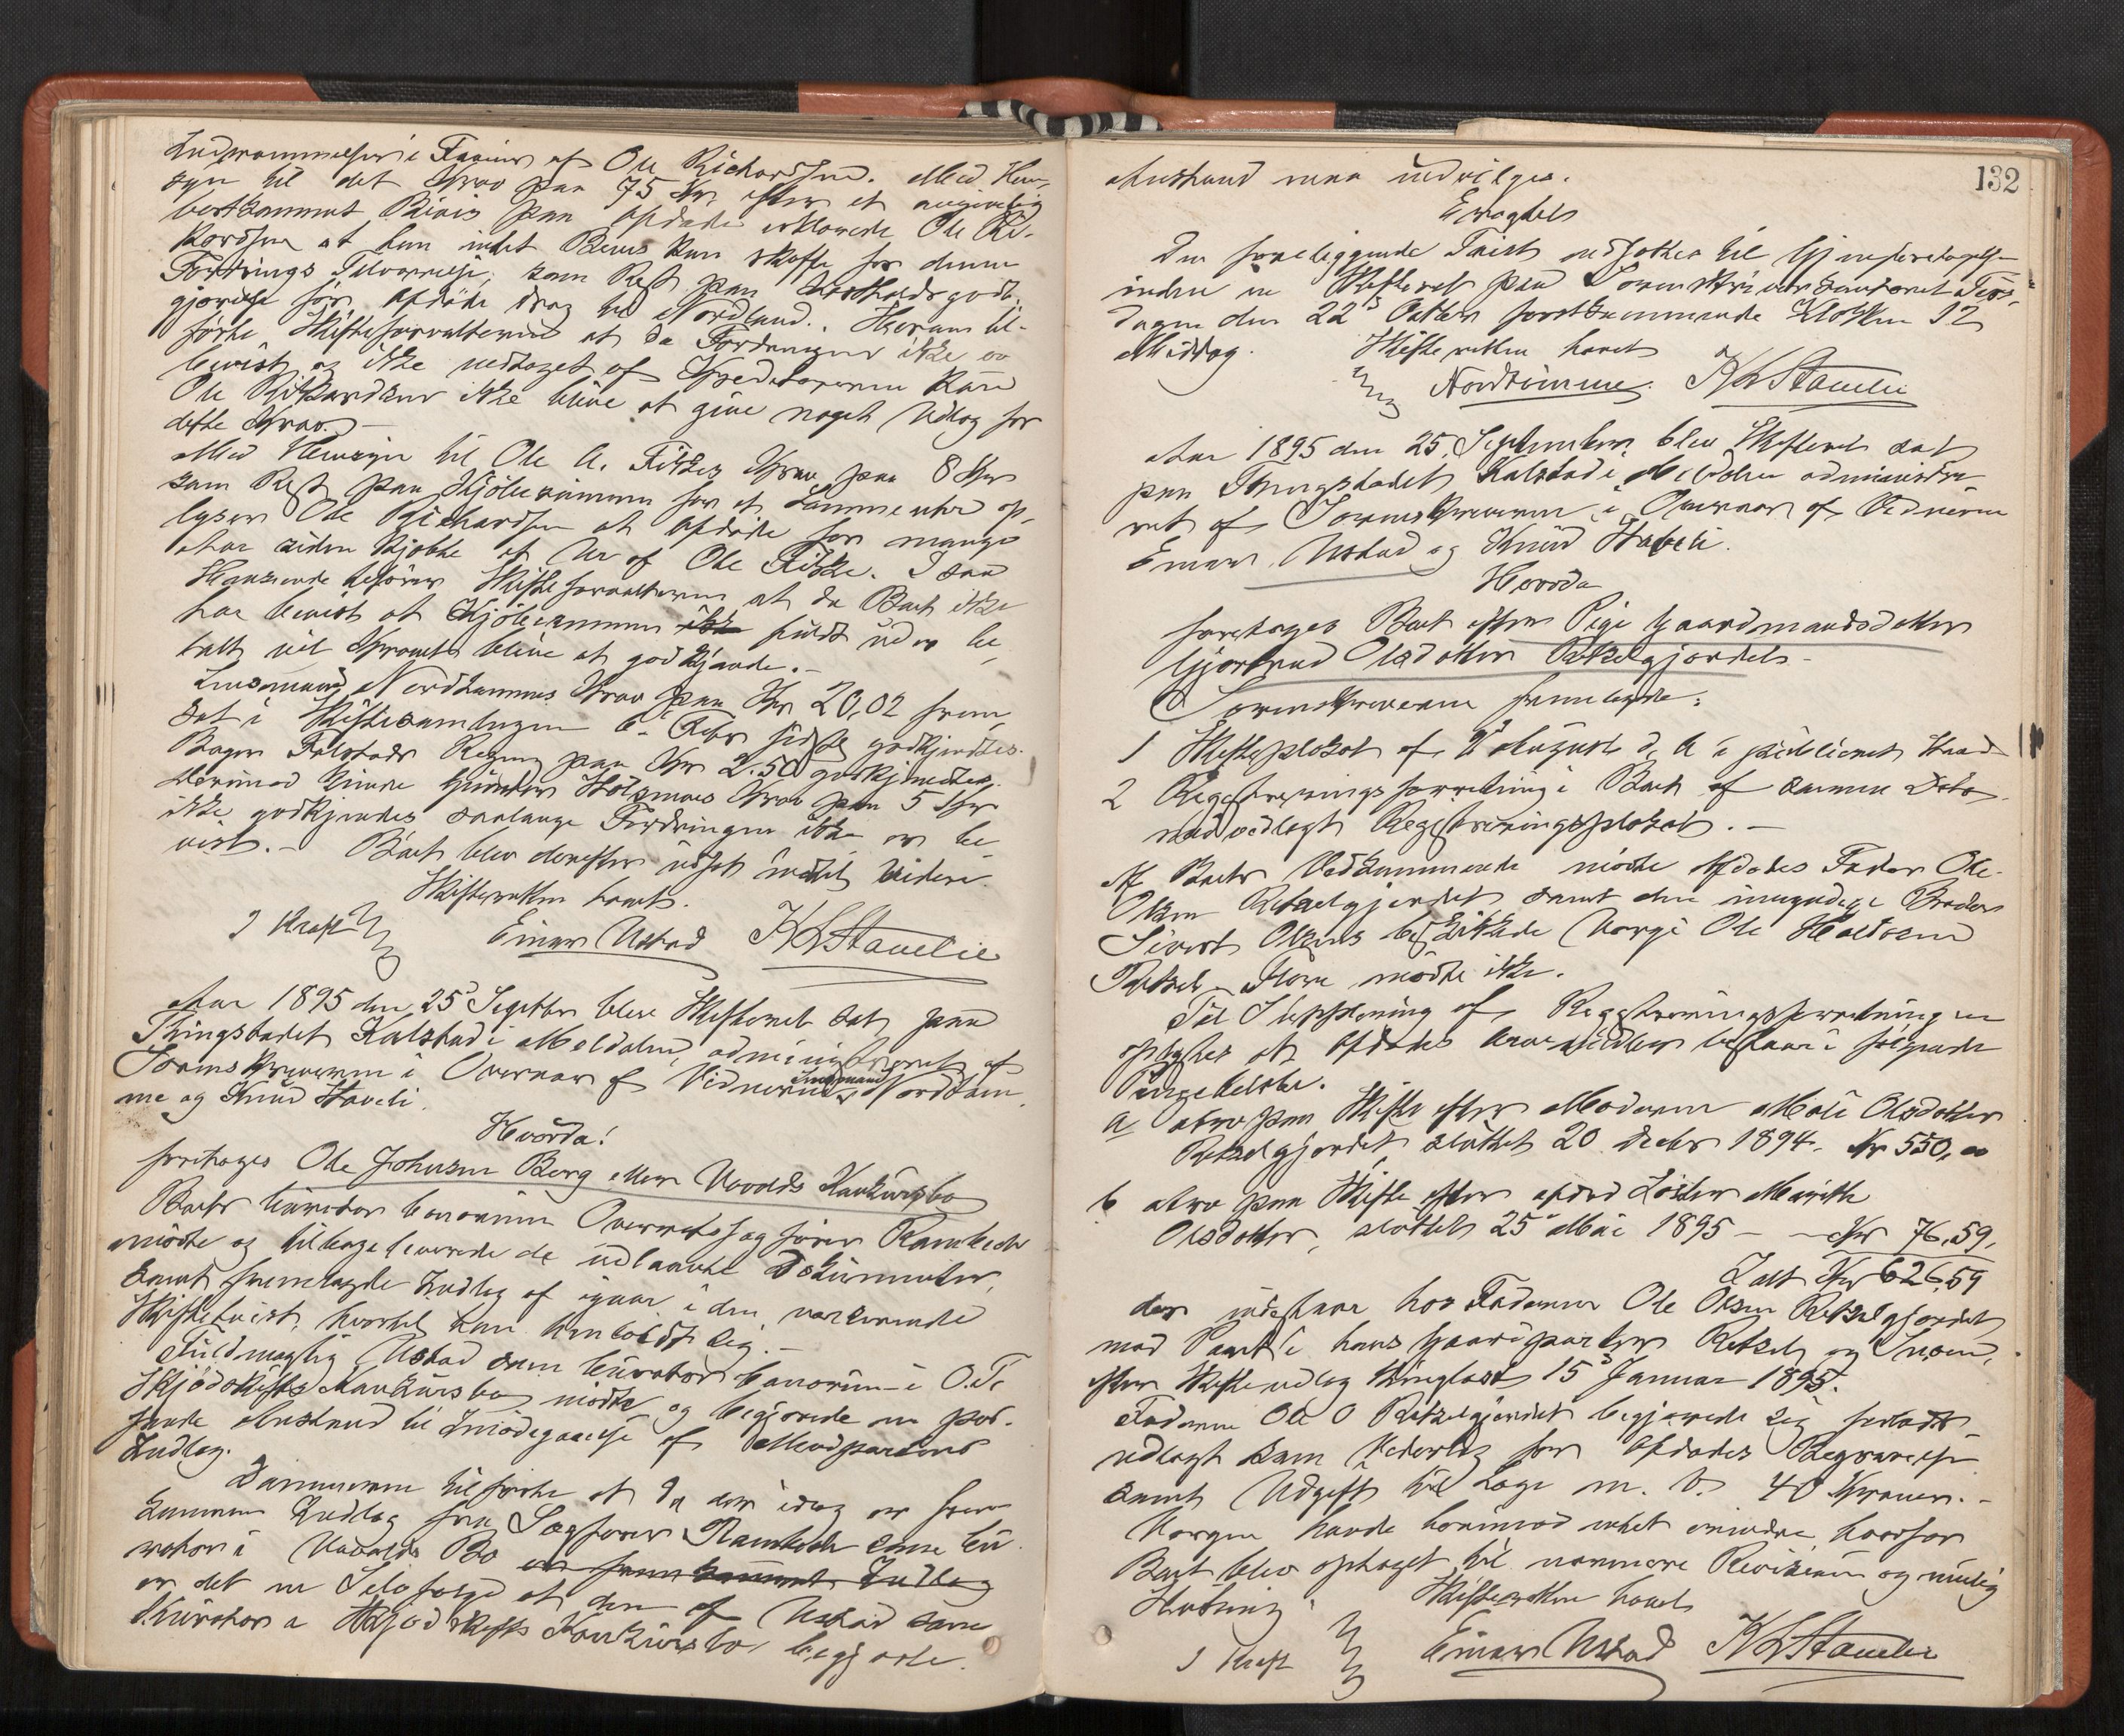 Indrømmelser i Favør af Ole Richardsen. Med Hen-
syn til det Krav paa 75 Kr efter et
Bevis paa Afdøde erklærede Ole Ri-
kardsen at han intet Bevis kan skaffe for denne
Fordrings Tilværelse, som Rest paa godt-
gjørelse før Afdøde drog til Nordland. Herom til-
førte Skifteforvalteren at da Fordringen ikke er
bevist og ikke vedtaget af Kreditorerne kan
Ole Rikardsen ikke blive at give noget Udlæg for
dette Krav.-
Med Hensyn til Ole A. Fiskes Krav paa 8 Kr
som Rest paa Kjøbesummen for et Lommeuhr op-
lyser Ole Richardsen at Afdøde for mange
Aar siden kjøbte et Ur af Ole Fiske. I saa
Henseende tilføres Skifteforvalteren at da Boet ikke
har bevist at Kjøbesummen ikke fuldt ud er be-
talt vil Kravet blive at godkjende.-
Lensmand Nordtømmes Krav paa Kr 20,02 frem-
sat i Skiftesamlingen 6 Febr sidstl godkjendtes.
Bager Falstads Regning paa Kr 2.50 godkjendtes.
Derimod kunde Holsmoes Krav paa 5 Kr
ikke godkjendes saalænge Fordringen ikke er be-
vist.- Boet blev derefter udsat indtil videre.
Skifteretten hævet.
J Kraft Einar Ustad K L Stavelie
Aar 1895 den 25' Septbr blev Skifteret sat paa
Thingstedet Kalstad i Meldalen, administreret af
Sorenskriveren i Overvær af Vidnerne Lensmand Nordtøm-
me og Knud Stavli.
Hvorda!
foretoges Ole Johnsen Berg eller Uvolds Konkursbo
Boets Curator bonorum Overretssagfører Rambech
mødte og tilbageleverede de udlaante Dokumenter
samt fremlagde Indlæg af igaar i den værserende
Skiftetvist, hvortil han henholdt sig.-
Fuldmægtig Ustad som Curator bonorum i O. T.
Skjødskifts Konkursbo mødte og begjærede en pas-
sende Anstand til Imødegaaelse af Modpartens
Indlæg.
Dommeren tilførte at da der idag er frem-
kommen Indlæg fra Sagfører Rambech som Cu-
rator i Uvolds Bo er fremkommet Indlæg
er det en Selvfølge at den af Ustad som
Kurator i Skjødskifts Konkursbo begjærte
132
Anstand maa indvilges.
Eragtet
Den foreliggende Tvist udsættes til Gjenforetagelse
inden en Skifteret paa Sorenskriverkontoret Tirs-
dagen den 22' Oktbr førstkommende Klokken 12
Middag. Skifteretten hævet
Nordtømme. K L Stavelie
Aar 1895 den 25' September blev Skifteret sat
paa Thingstedet Kalstad i Meldalen administre-
ret af Sorenskriveren i Overvær af Vidnerne
Einar Ustad og Knud Stavli.
Hvorda
foretoges Boet efter Pige Gaardmandsdatter
Gjertrud Olsdatter Retzelgjørdet.-
Sorenskriveren fremlagde:
1 Skifteplakat af 8 August d. A. i publiceret Stand
2 Registreringsforretning i Boet af samme Dato
med vedlagt Registreringsplakat.-
Af Boets Vedkommende mødte Afdødes Fader Ole
Olsen Retzelgjørdet samt den umyndige Broder
Sivert Olsens beskikkede Værge Ole Halvorsen
Retzel. Flere mødte ikke.
Til Supplering af Registreringsforretningen
oplystes at Afdødes Arvemidler bestaar i følgende
Pengebeløb.
a Arv paa Skifte efter Moderen Mali Olsdatter
Retzelgjørdet, sluttet 20 Decbr 1894. Kr 550,00
b Arv paa Skifte efter afdød Søster Marith
Olsdatter, sluttet 25' Mai 1895 - - Kr 76,59,
Ialt Kr 626,59
der indestaar hos Faderen Ole Olsen Retzelgjørdet
mod Pant i hans Gaardparter Retzel og
efter Skifteudlæg thinglæst 15' Januar 1895.
Faderen Ole O Retzelgjørdet begjærede sig forlods
udlagt som Vederlag for Afdødes Begravelse
samt Udgift til Læge m. V. 40 Kroner.-
Værgen havde herimod intet erindre, hvorfor
Boet blev optaget til nærmere Revision og mulig
Slutning. Skifteretten hævet
J Kraft Einar Ustad K L Stavelie